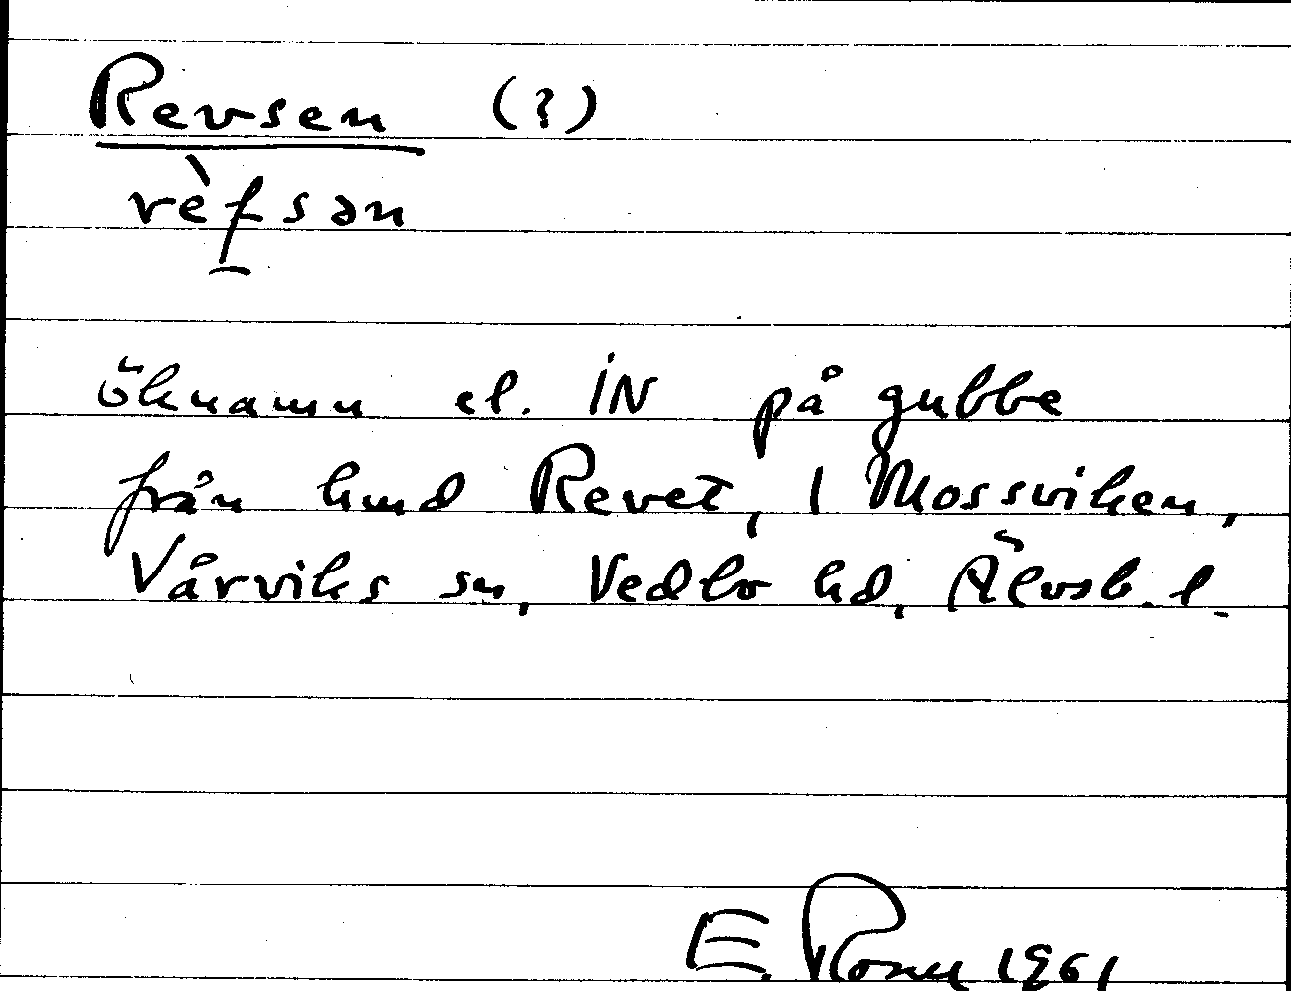 Revsen (?)
rèfsən
öknamn el. IN på gubbe
från hmd Revet, 1 Mossviken,
Vårviks sn, Vedbo hd, Älvsb. l.
E. 1961